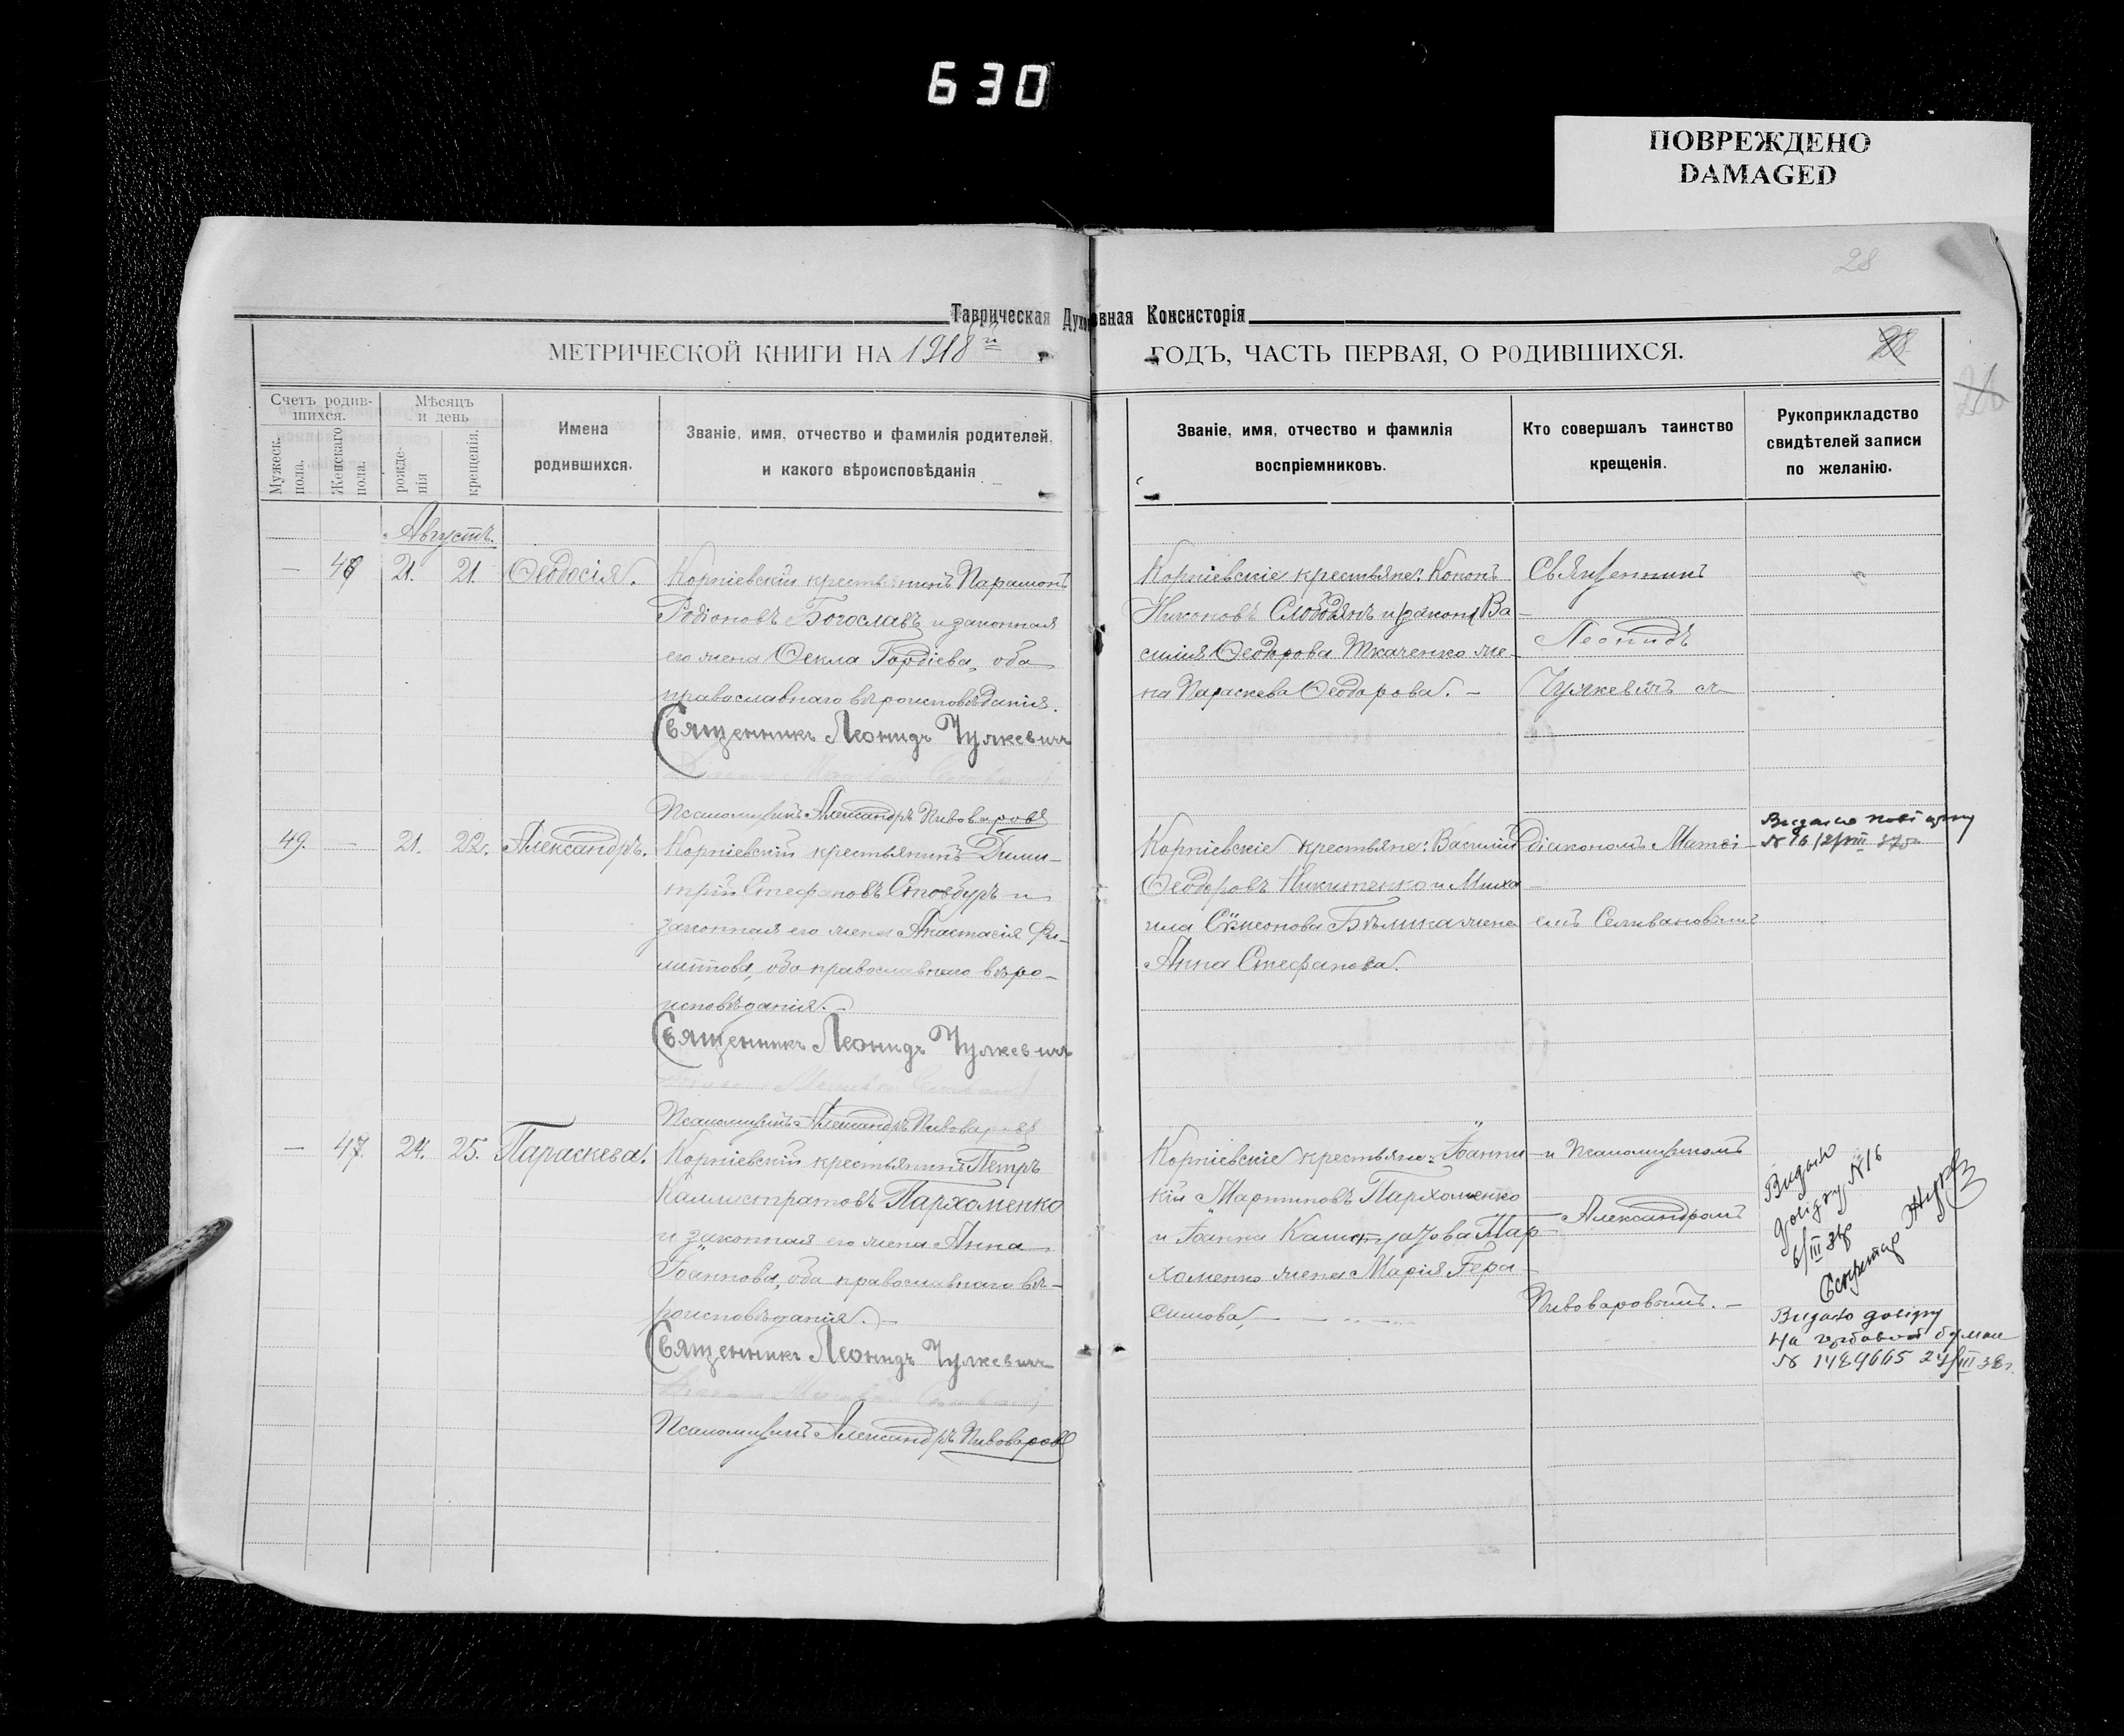 630
ПОВРЕЖДЕНО
DAMAGED
28
Таврическая Духовная Консисторія
МЕТРИЧЕСКОЙ КНИГИ НА 1918й ГОДЪ, ЧАСТЬ ПЕРВАЯ, О РОДИВШИХСЯ.
28
Счетъ родив-
шихся.
Мужеск. пола.
Женскаго пола.
Мѣсяцъ
и день
рожде-
нія
крещенія.
Имена
родившихся.
Званіе, имя, отчество и фамилія родителей,
и какого вѣроисповѣданія
Званіе, имя, отчество и фамилія
воспріемниковъ.
Кто совершалъ таинство
крещенія.
Рукоприкладство
свидѣтелей записи
по желанію.
Августъ.
— 46 21. 21. Ѳеодосія.
Корніевскій крестьянинъ Парамонъ
Родіоновъ Богославъ и законная
его жена Ѳекла Гордіева, оба
православнаго вѣроисповѣданія.
Священникъ Леонидъ Чулкевичъ
Псаломщикъ Александръ Пивоваровъ
Корніевскіе крестьяне: Кононъ
Никоновъ Слободянъ и законн. Ва
силія Ѳеодорова Ткаченко же-
на Параскева Ѳеодорова. —
Священникъ
Леонидъ
Чулкевичъ съ
49. — 21. 22. Александръ.
Корніевскій крестьянинъ Дими-
трій Стефановъ Стовбуръ и
законная его жена Анастасія Фи-
липпова, оба православнаго вѣро-
исповѣданія. —
Священникъ Леонидъ Чулкевичъ
Псаломщикъ Александръ Пивоваровъ
Корніевскіе крестьяне: Василій
Ѳеодоровъ Никитенко и Миха
ила Симеонова Бѣлика жена
Анна Стефанова.
Діакономъ Матѳі-
емъ Селивановымъ
— 47. 24. 25. Параскева.
Корніевскій крестьянинъ Петръ
Каллистратовъ Пархоменко
и законная его жена Анна
Іоаннова, оба православнаго вѣ-
роисповѣданія. —
Священникъ Леонидъ Чулкевичъ
Псаломщикъ Александръ Пивоваровъ
Корніевскіе крестьяне: Іоанни
кій Мартиновъ Пархоменко
и Іоанна Каллистратова Пар-
хоменко жена Марія Гера-
симова, —
и Псаломщикомъ
Александромъ
Пивоваровымъ. —
Видано
довідку №16
6/III 38р
Секретар
Видано довідку
на гербовой бумаи
№ 1489665 27/III 38г.